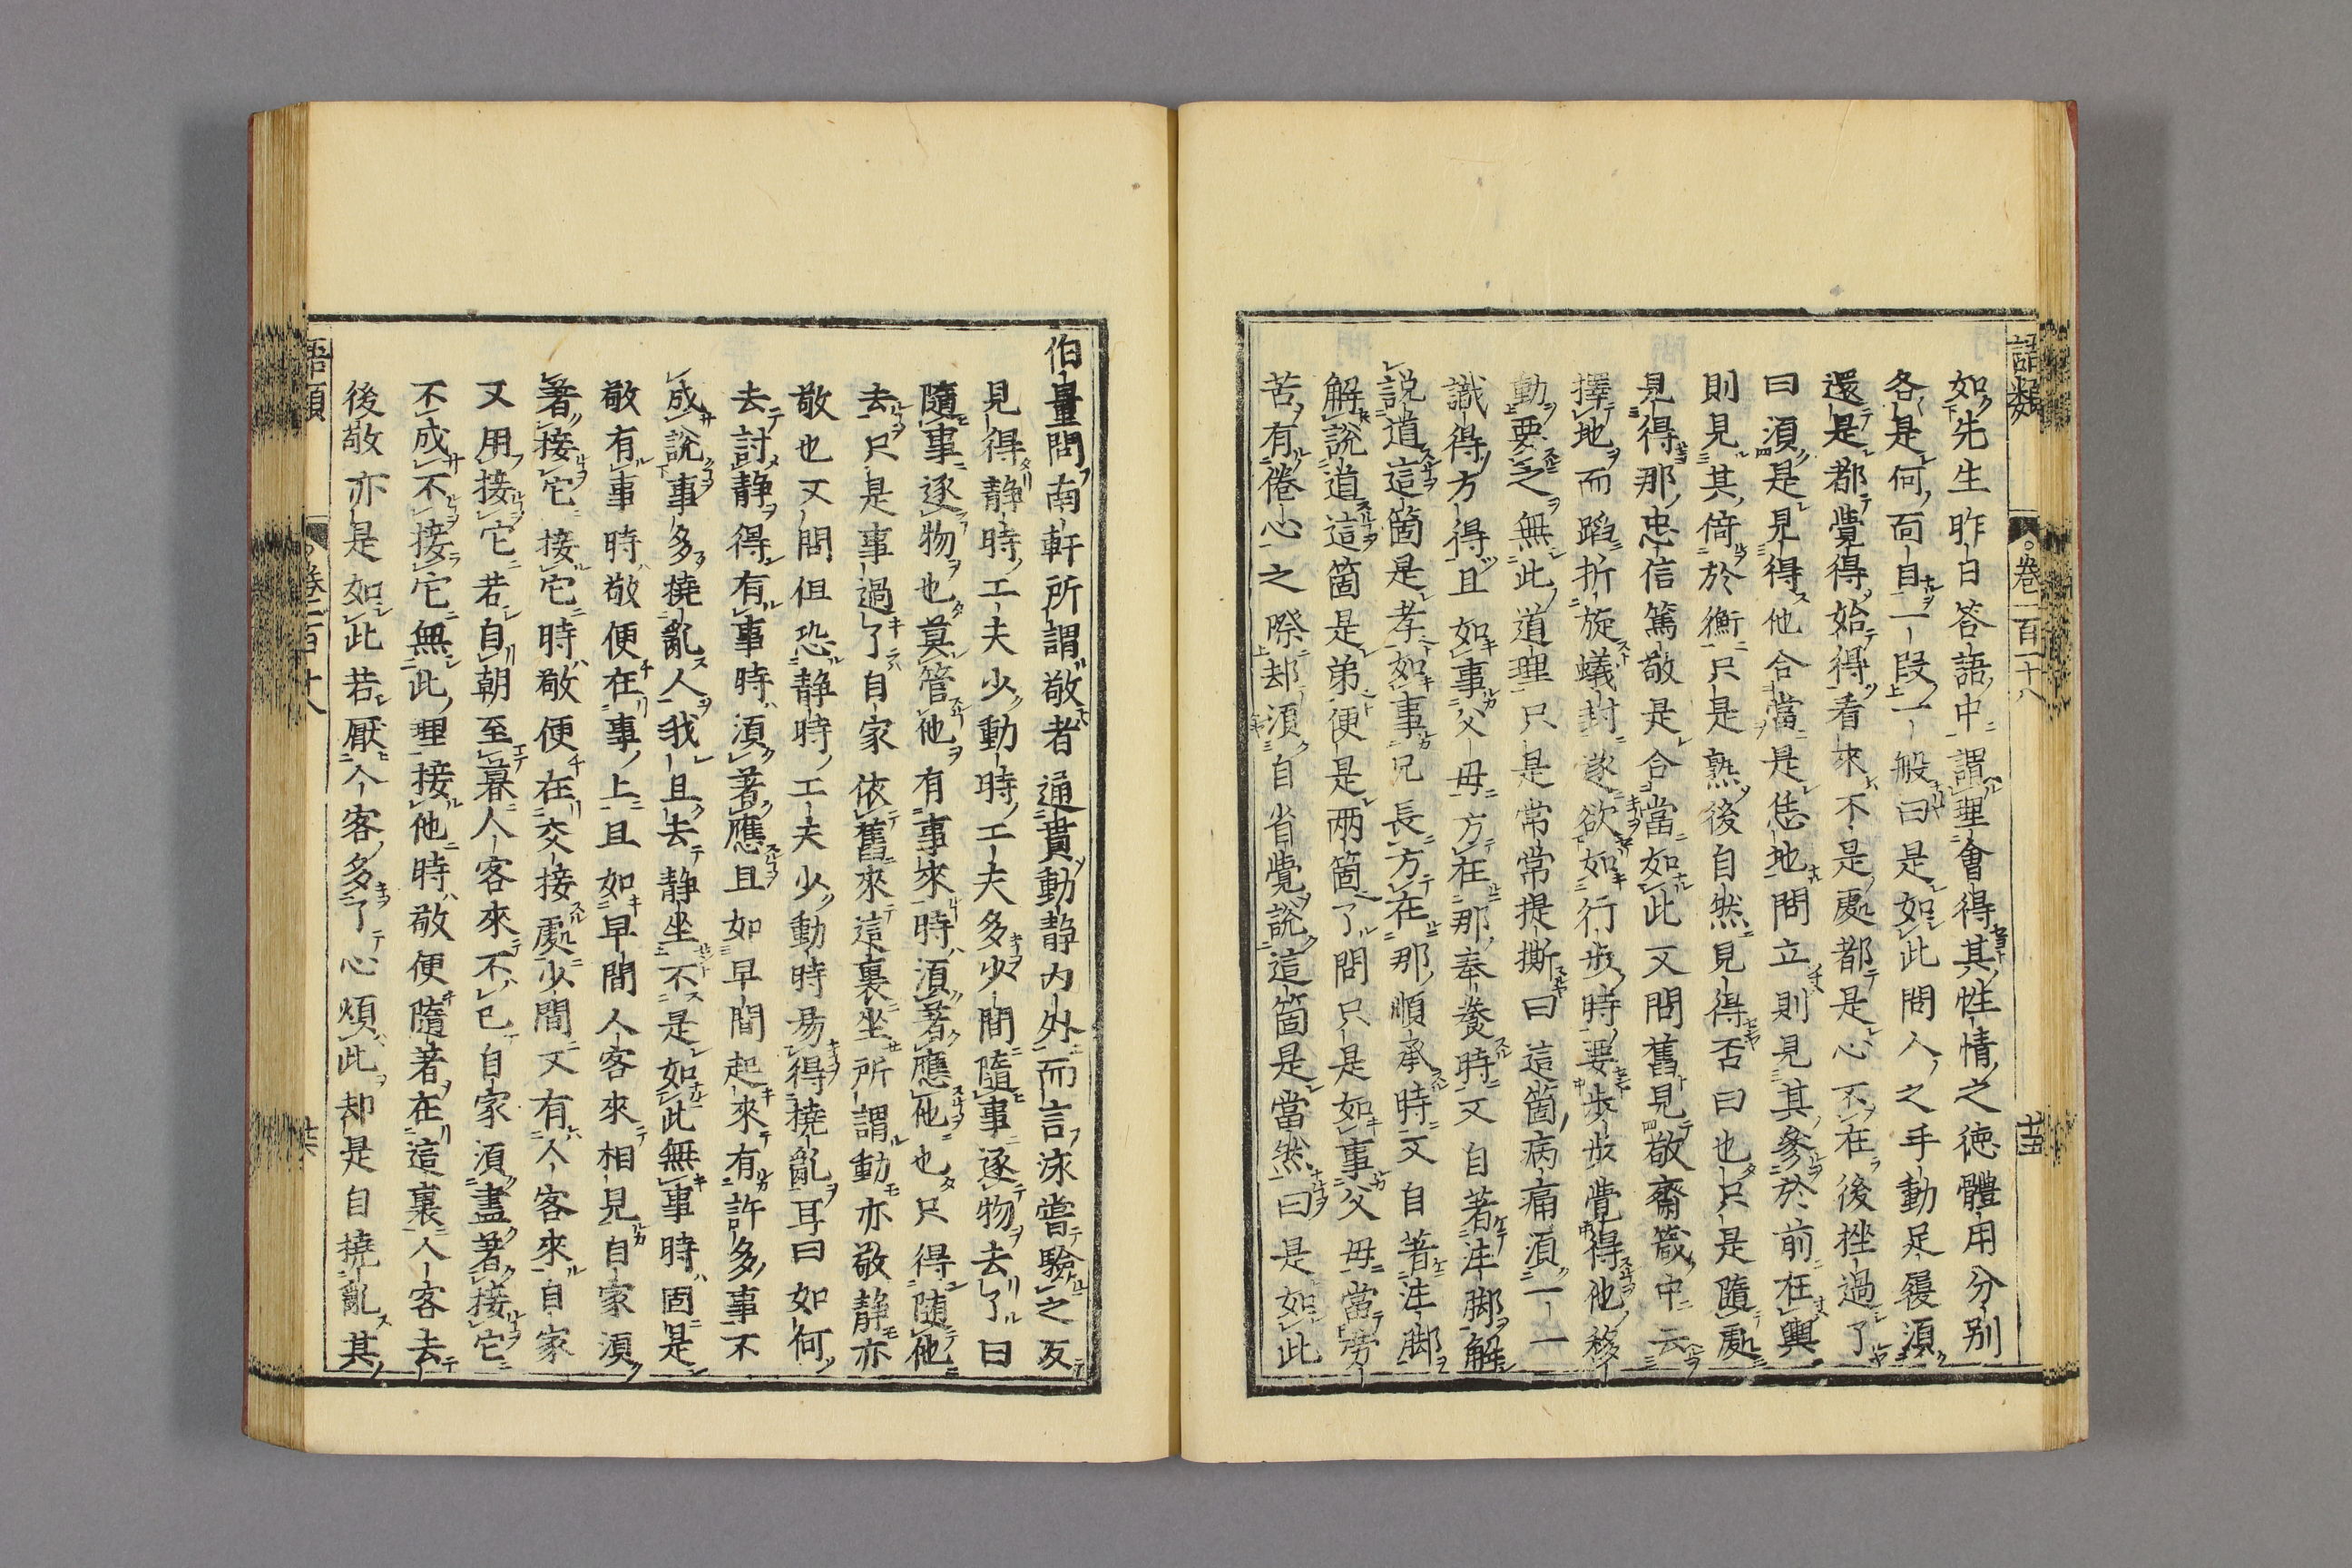 語類
卷一百一十八
如先生昨日答語中謂理會得其性情之德體用分別
各是何面目一段一般曰是如此問人之手動足履須
還是都覺得始得看來不是處都是心不在後挫過了
曰須是見得他合當是恁地問立則見其參於前在輿
則見其倚於衡只是熟後自然見得否曰也只是隨處
見得那忠信篤敬是合當如此又問舊見敬齋箴中云
擇地而蹈折旋蟻封遂欲如行步時要步步覺得他移
動要之無此道理只是常常提撕曰這箇病痛須一一
識得方得且如事父母方在那奉養時又自著注脚解
說道這箇是孝如事兄長方在那順承時又自著注脚
解說道這箇是弟便是兩箇了問只是如事父母當勞
苦有倦心之際却須自省覺說這箇是當然曰是如此
伯量問南軒所謂敬者通貫動靜內外而言泳嘗驗之反
見得靜時工夫少動時工夫多少間隨事逐物去了曰
隨事逐物也莫管他有事來時須著應他也只得隨他
去只是事過了自家依舊來這裏坐所謂動亦敬靜亦
敬也又問但恐靜時工夫少動時易得撓亂耳曰如何
去討靜得有事時須著應且如早間起來有許多事不
成說事多撓亂人我且去靜坐不是如此無事時固是
敬有事時敬便在事上且如早間人客來相見自家須
著接它接它時敬便在交接處少間又有人客來自家
又用接它若自朝至暮人客來不已自家須盡著接它
不成不接它無此理接他時敬便隨著在這裏人客去
後敬亦是如此若厭人客多了心煩此却是自撓亂其
語類
卷一百十八